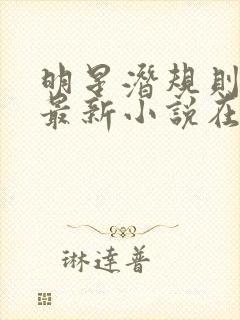 明星潛規則
最新小說在
琳達普